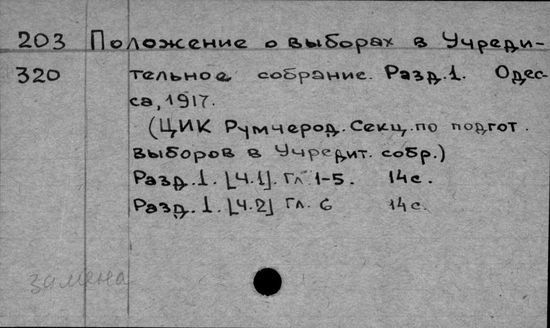 203 Положение о выборах в Учреди-
320 тельное собрание. Разд.1. Одес-
са, 1917.
(ЦИК Румчерод. Секц. по подгот.
выборов в Учредит. собр.)
Разд.1. [Ч.1]. Гл. 1-5. 14с.
Разд.1. [Ч.2] Гл. 6 14с.
замена